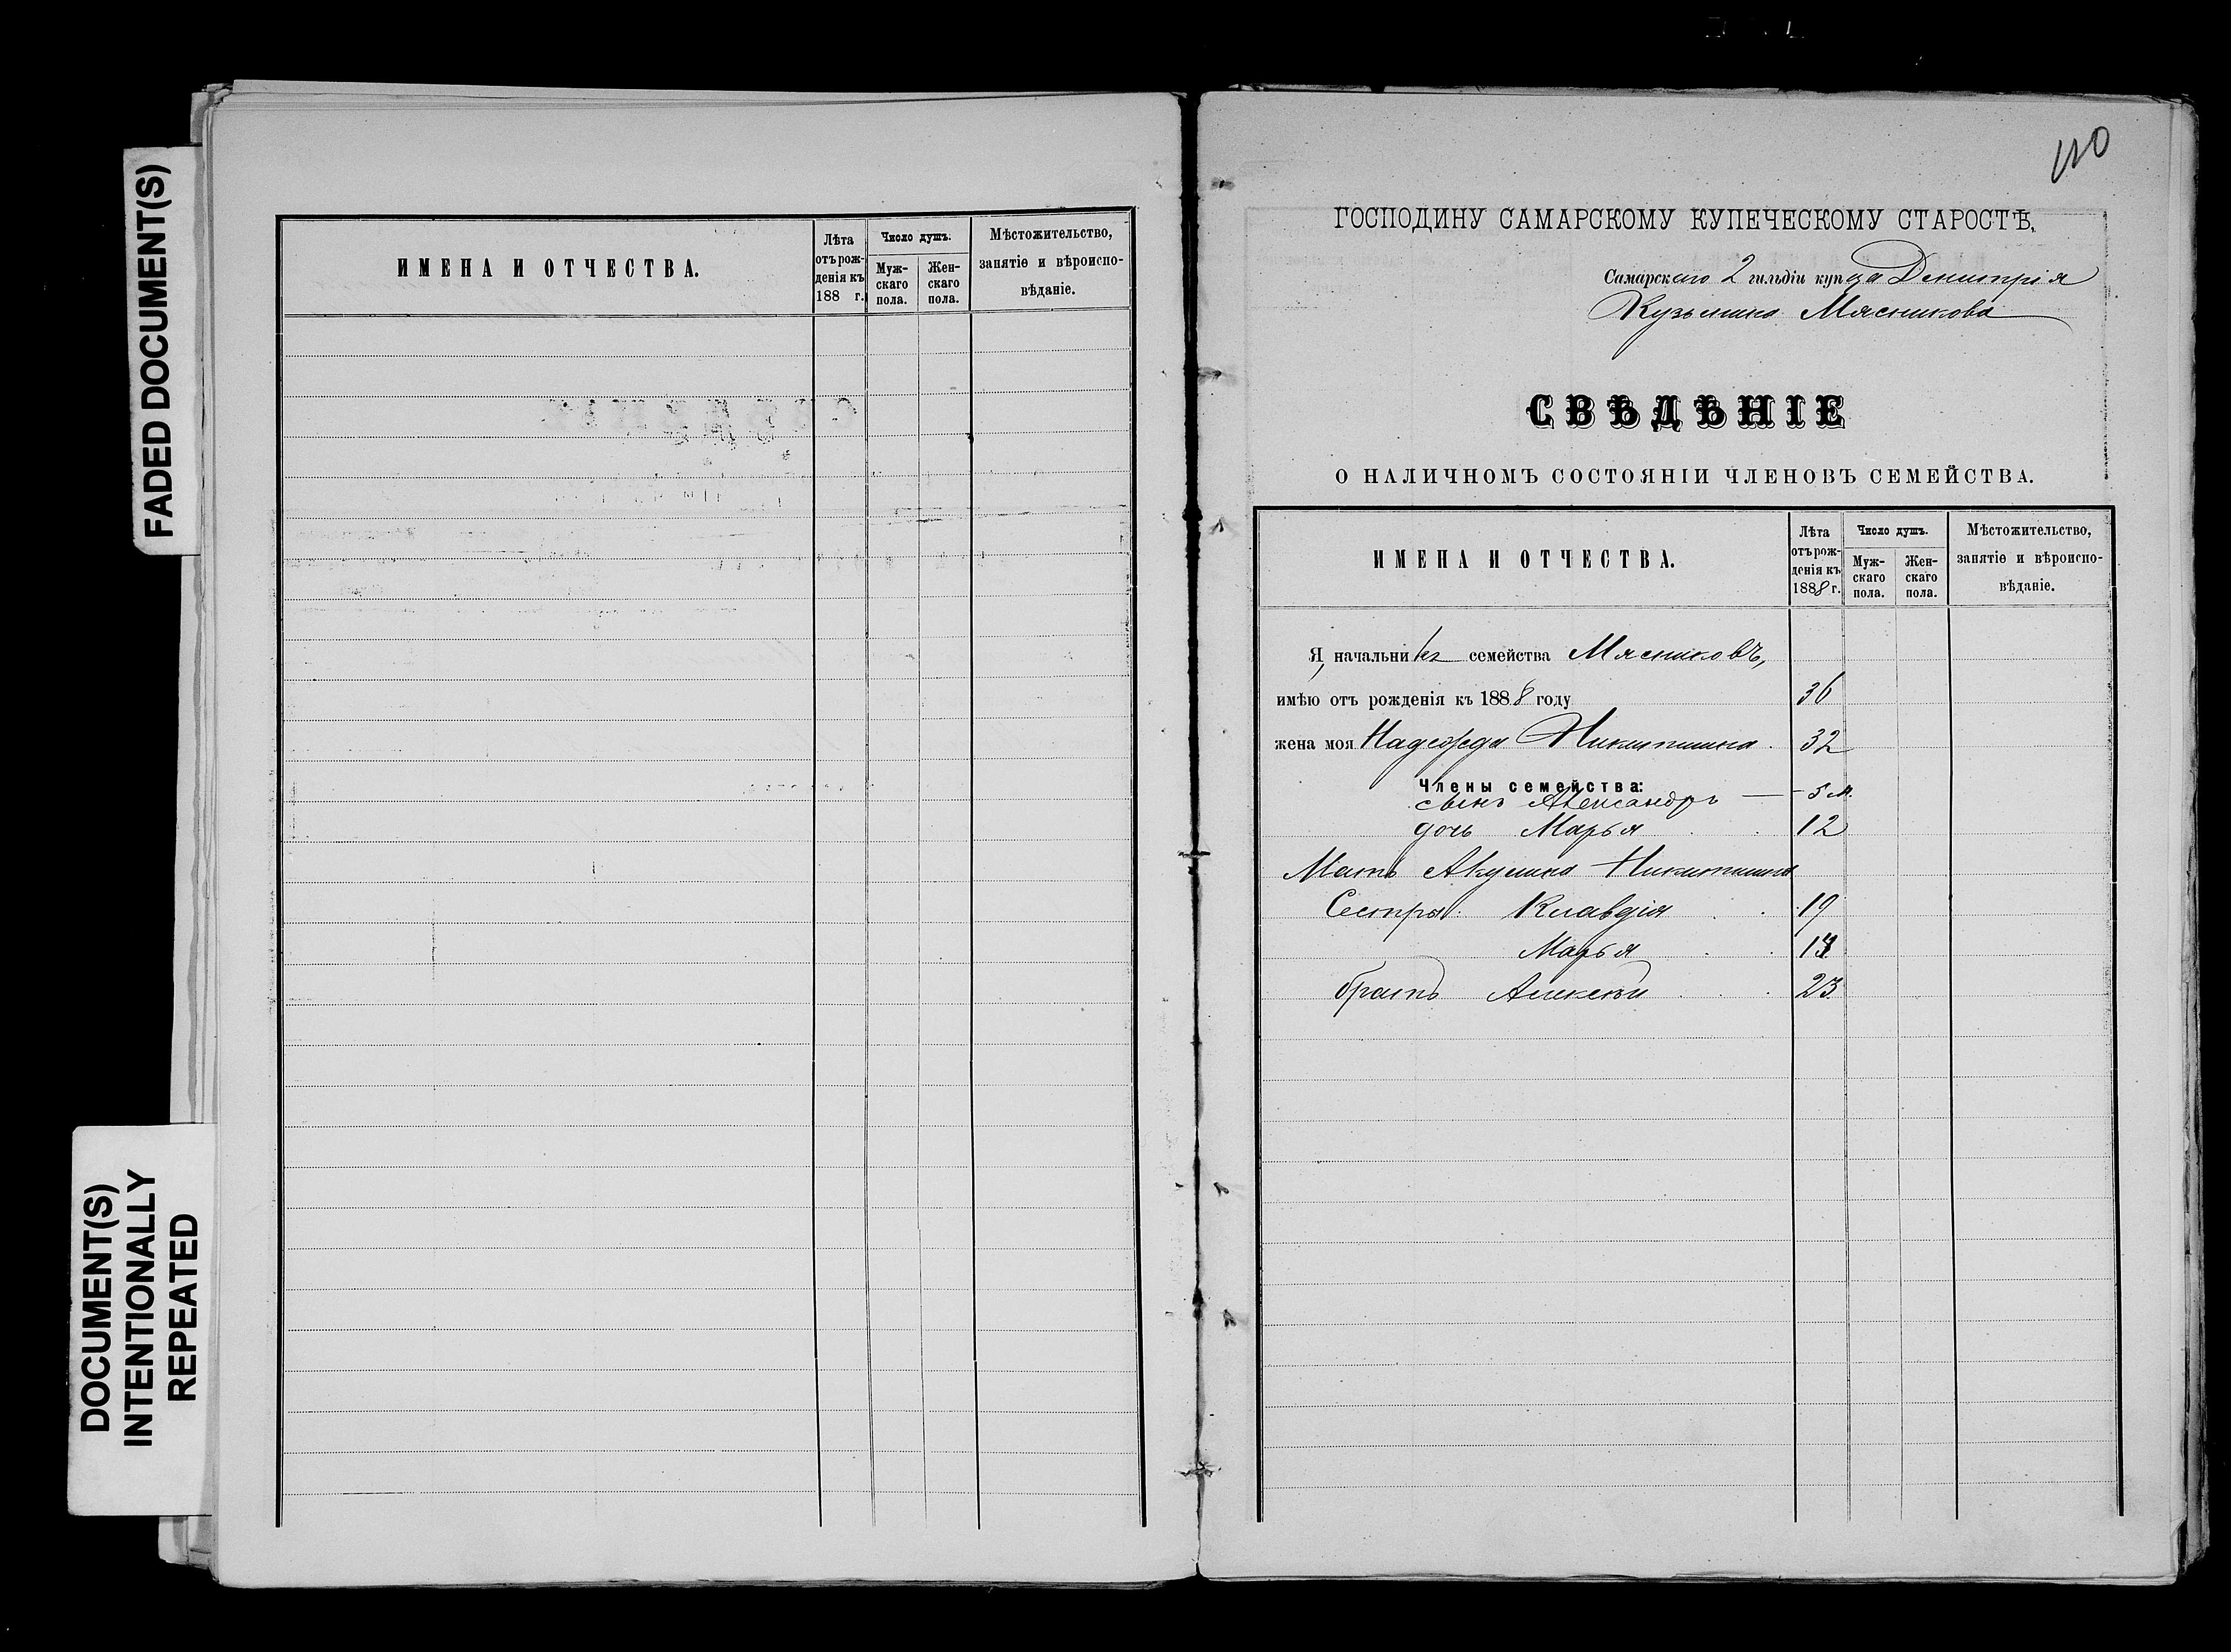 FADED DOCUMENT(S)
DOCUMENT(S)
INTENTIONALLY
REPEATED
ИМЕНА И ОТЧЕСТВА.
Лѣта
отъ рож-
денія къ
188 г.
Число душъ.
Муж-
скаго
пола.
Жен-
скаго
пола.
Мѣстожительство,
занятіе и вѣроиспо-
вѣданіе.
ГОСПОДИНУ САМАРСКОМУ КУПЕЧЕСКОМУ СТАРОСТѢ,
Самарскаго 2 гильдіи купца Дмитрія
Кузьмина Мясникова
СВѢДѢНІЕ
О НАЛИЧНОМЪ СОСТОЯНІИ ЧЛЕНОВЪ СЕМЕЙСТВА.
ИМЕНА И ОТЧЕСТВА.
Лѣта
отъ рож-
денія къ
1888 г.
Число душъ.
Муж-
скаго
пола.
Жен-
скаго
пола.
Мѣстожительство,
занятіе и вѣроиспо-
вѣданіе.
Я, начальникъ семейства Мясниковъ,
имѣю отъ рожденія къ 1888 году 36
жена моя Надежда Никитина 32
Члены семейства:
сынъ Александръ — 5 м.
дочь Марья 12
Мать Акулина Никитина
Сестры: Клавдія 19
Марья
братъ Алексѣй 23